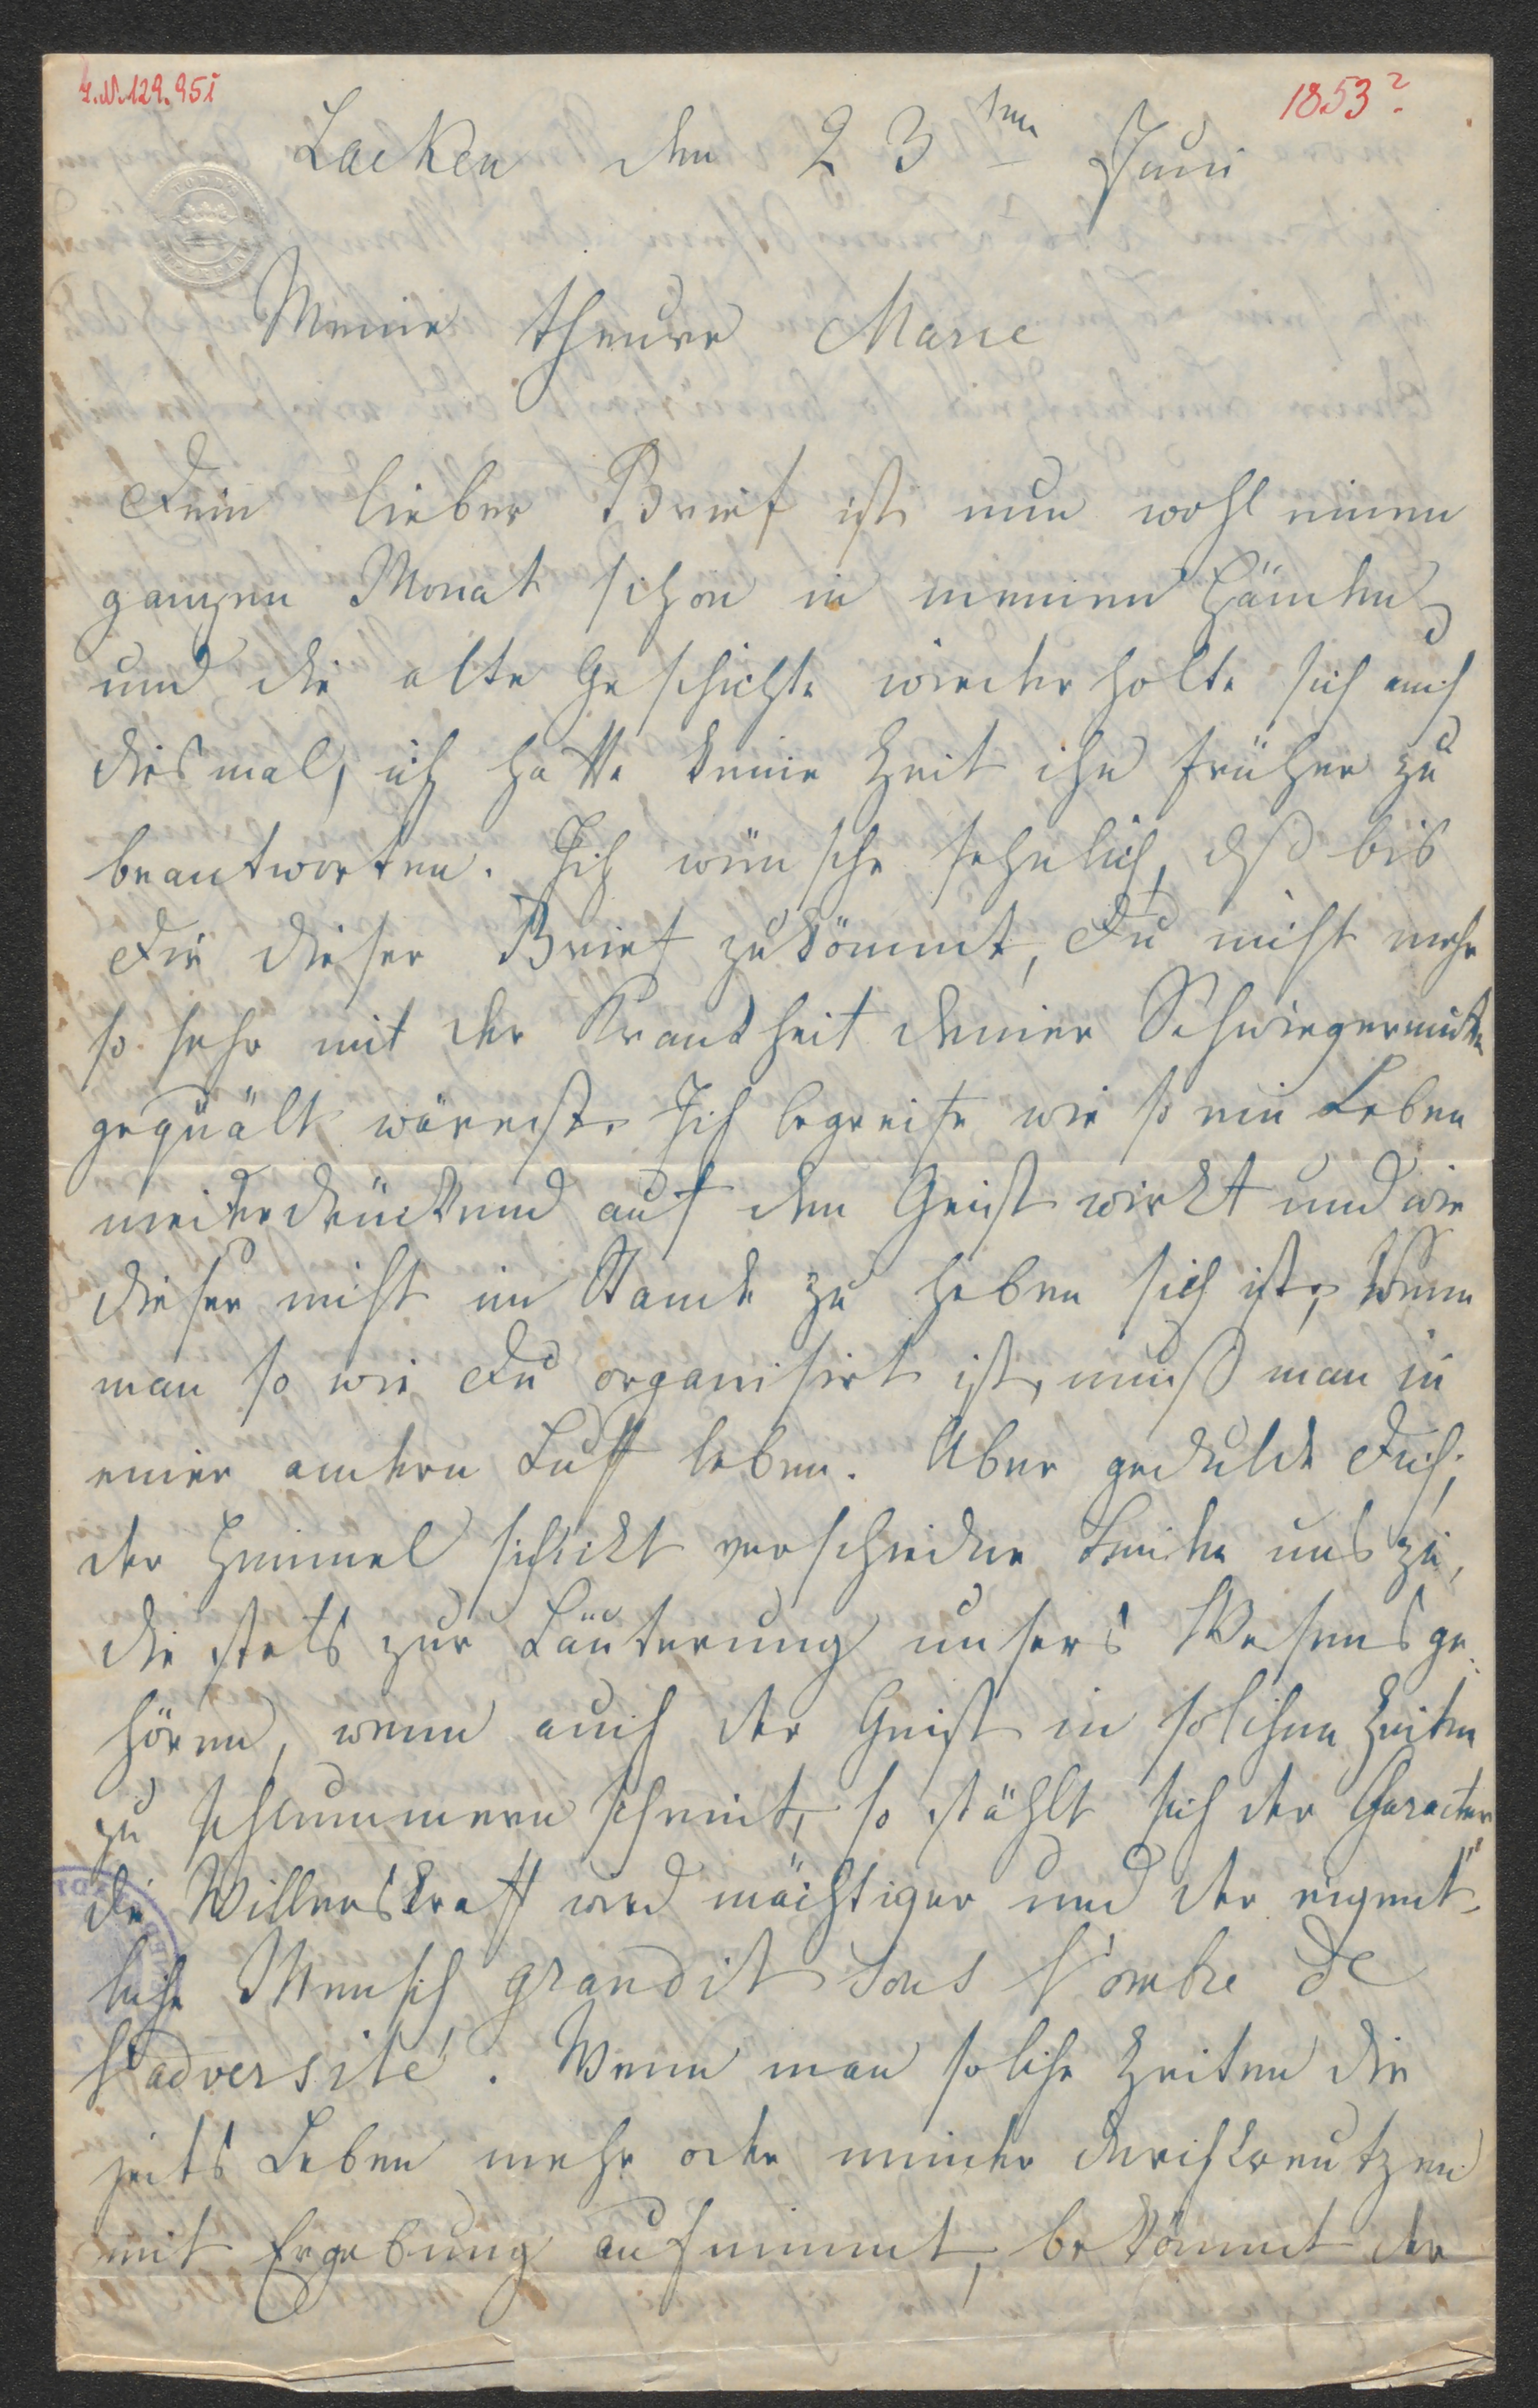 I.N. 129.951
1853?
Laeken den 23ten Juni
Meine theure Marie
Dein lieber Brief ist nun wohl einen
ganzen Monat schon in meinen Händen
und die alte Geschichte wiederholte sich auch
diesmal, ich hatte keine Zeit ihn früher zu
beantworten. Ich wünsche sehnlich, daß bis
Dir dieser Brief zukömmt, Du nicht mehr
so sehr mit der Krankheit deiner Schwiegermutter
gequält wärest. Ich begreife wie so ein Leben
niederdrückend auf den Geist wirkt und wie
dieser nicht im Stande zu heben sich ist; Wenn
man so wie Du organisirt ist, muß man in
einer andern Luft leben. Aber gedulde Dich;
der Himmel schickt verschiedne Leiden uns zu,
die stets zur Läuterung unsers Wesens ge-
hören, wenn auch der Geist in solchen Zeiten
zu schlummern scheint, so stählt sich der Caracter
die Willenskraft wird mächtiger und der eigent-
liche Mensch grandit sous l'ombre de
l'adversité. Wenn man solche Zeiten die
jedes Leben mehr oder minder durchkreutzen
mit Ergebung aufnimmt, bekömmt der